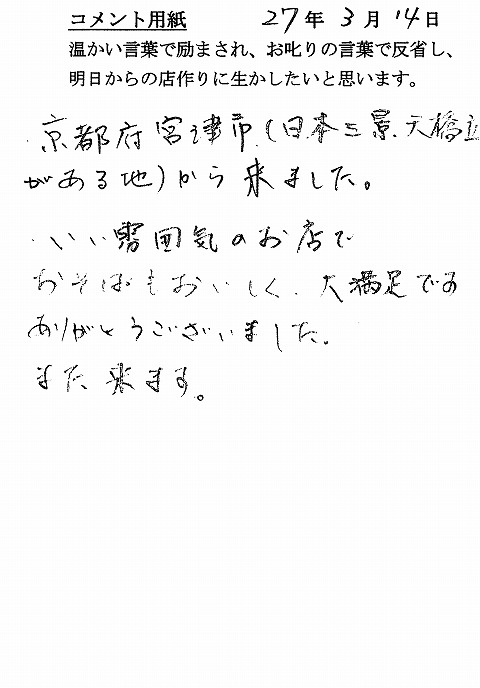 コメント用紙 27年3月14日
温かい言葉で励まされ、お叱りの言葉で反省し、
明日からの店作りに生かしたいと思います。
・京都府宮津市(日本三景天橋立
がある地)から来ました。
・いい雰囲気のお店で
おそばもおいしく、大満足です
ありがとうございました。
また来ます。